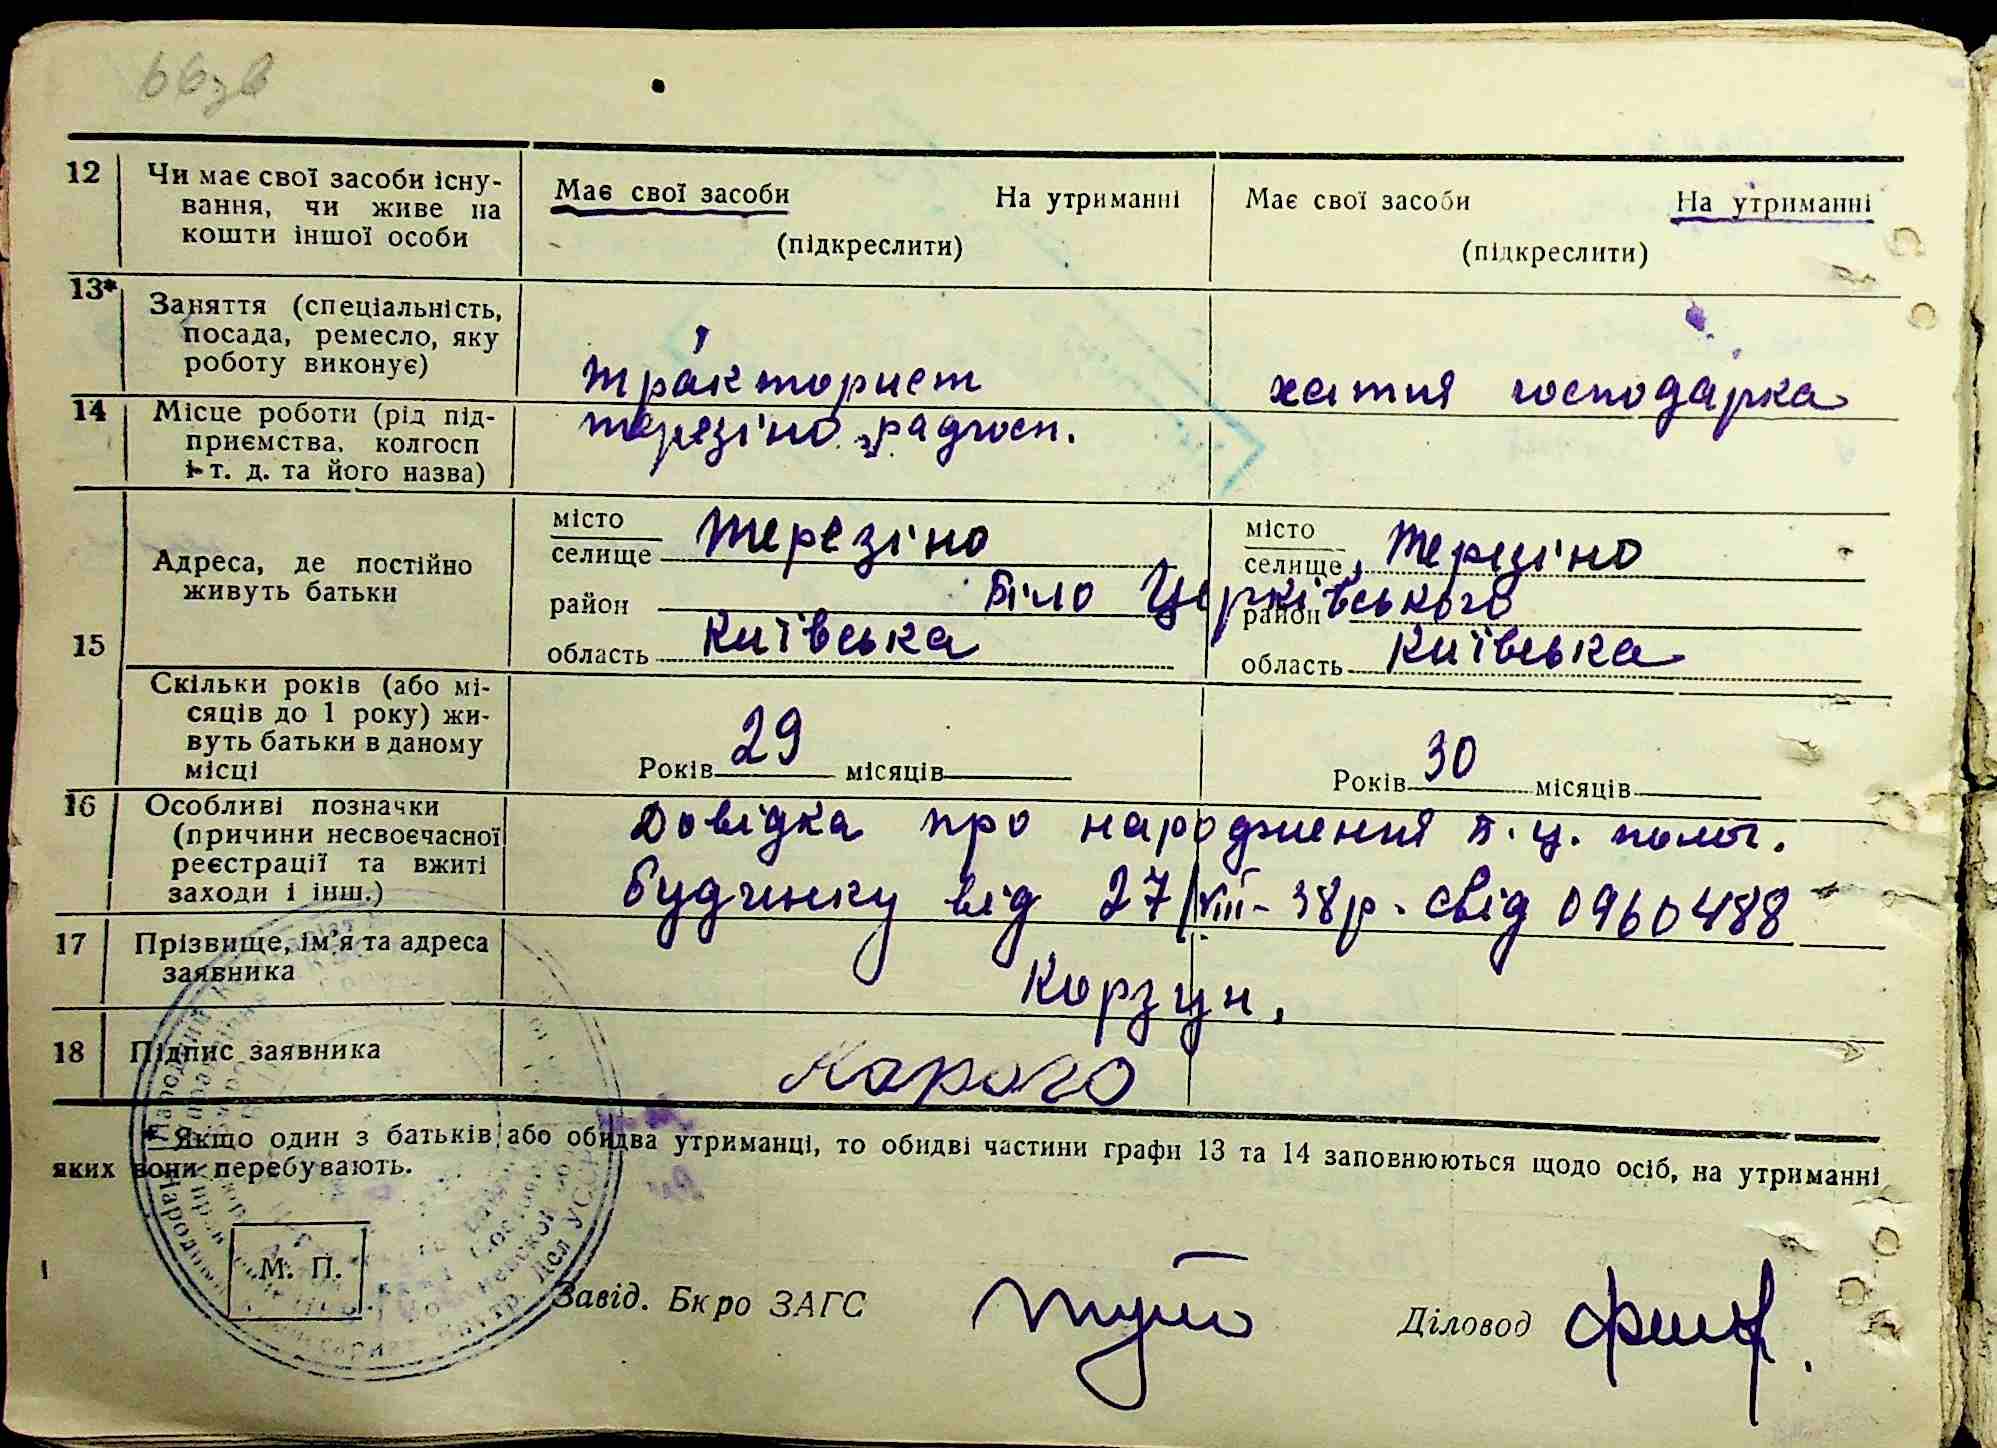 66зв
12 Чи має свої засоби існу-
вання, чи живе на
кошти іншої особи
Має свої засоби На утриманні
(підкреслити)
Має свої засоби На утриманні
(підкреслити)
13* Заняття (спеціальність,
посада, ремесло, яку
роботу виконує)
тракторист
хатня господарка
14 Місце роботи (рід під-
приємства, колгосп
і т. д. та його назва)
терезіно радгосп.
15
Адреса, де постійно
живуть батьки
місто
селище Терезіно
район Біло Церківського
область Київська
місто
селище Терезіно
район
область Київська
Скільки років (або мі-
сяців до 1 року) жи-
вуть батьки в даному
місці
Років 29 місяців
Років 30 місяців
16 Особливі позначки
(причини несвоєчасної
реєстрації та вжиті
заходи і інш.)
Довідка про народження Б.Ц. полог.
будинку від 27/VIII-38р. свід 0960488
17 Прізвище, ім'я та адреса
заявника
Корзун.
18 Підпис заявника
* Якщо один з батьків або обидва утриманці, то обидві частини графи 13 та 14 заповнюються щодо осіб, на утриманні
яких вони перебувають.
М. П.
Завід. Бюро ЗАГС
Діловод